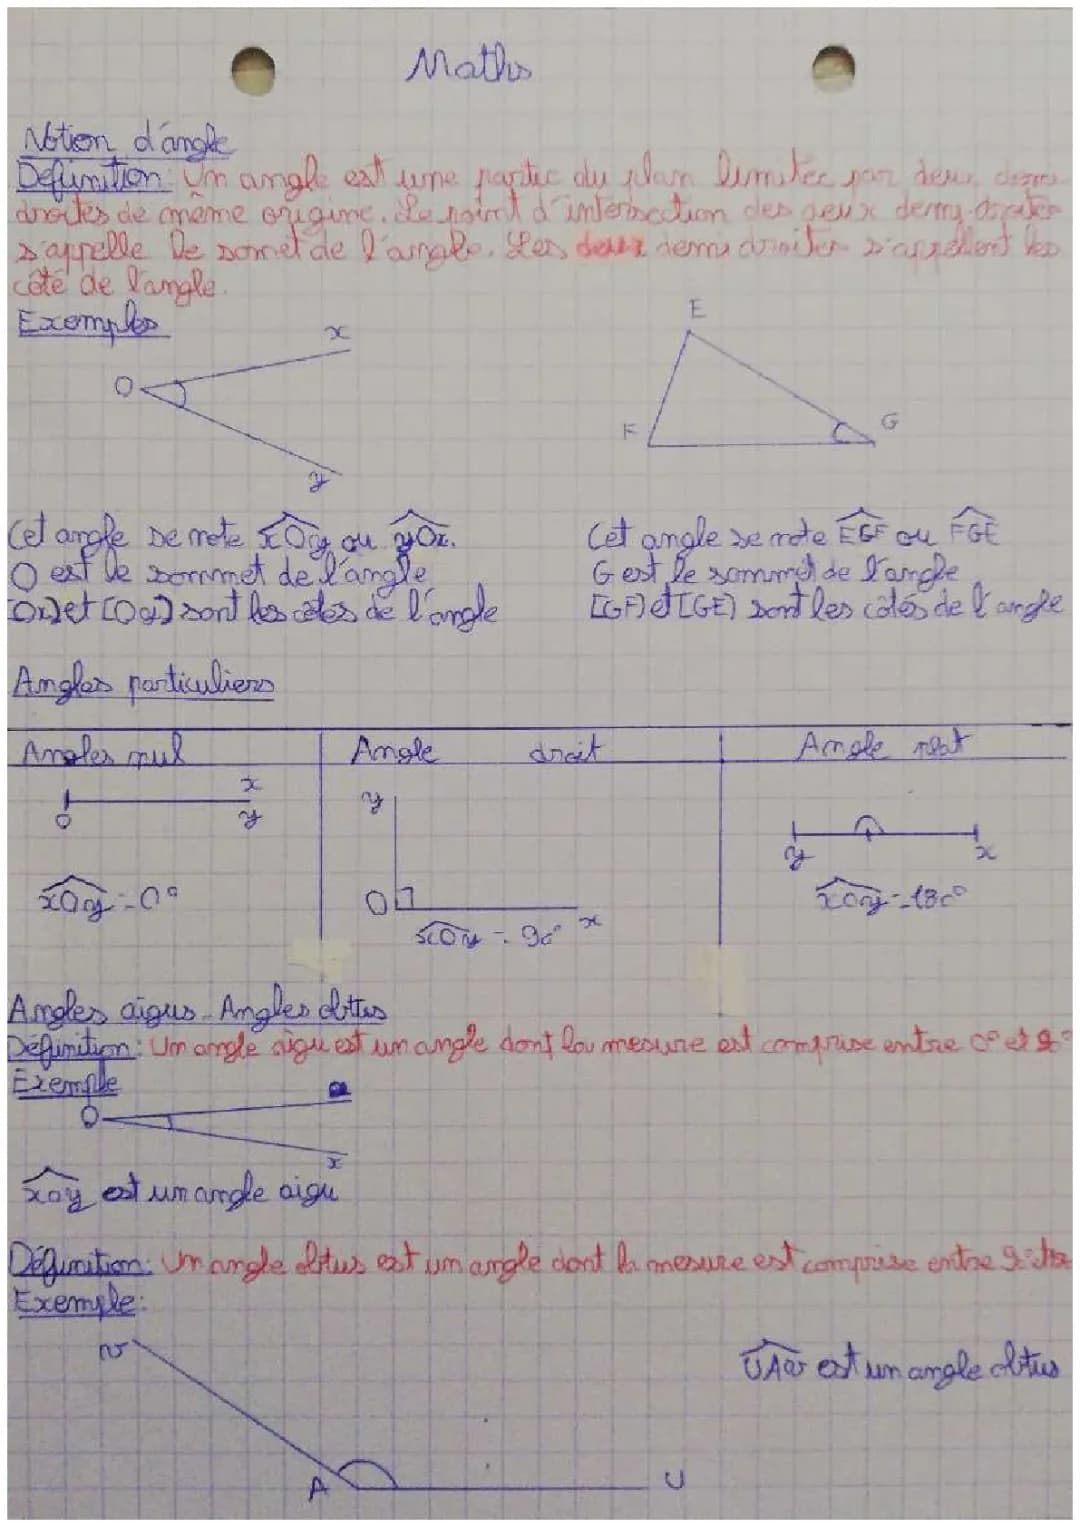 Maths
Notion d'angle
Définition: Un angle est une partie du plan limitée par deux demi
droites de même origine. Le point d'intersection des deux demi-droites
s'appelle le somet de l'angle. Les deux demi droites s'appellent les
côté de l'angle.
Exemples
x
O
y
E
F
G
Cet angle se note xOy ou yOx.
O est le sommet de l'angle
[Ox) et [Oy) sont les côtés de l'angle
Cet angle se note EGF ou FGE
G est le sommet de l'angle
[GF) et [GE) sont les côtés de l'angle
Angles particuliers
Angles nul
Angle droit
Angle plat
O
x
y
xOy = 0°
y
O
x
xOy = 90°
y
x
xOy = 180°
Angles aigus - Angles obtus
Définition: Un angle aigu est un angle dont la mesure est comprise entre 0° et
Exemple
O
x
xoy est un angle aigu
Définition: Un angle obtus est un angle dont la mesure est comprise entre
Exemple:
v
UAv est un angle obtus
A
U